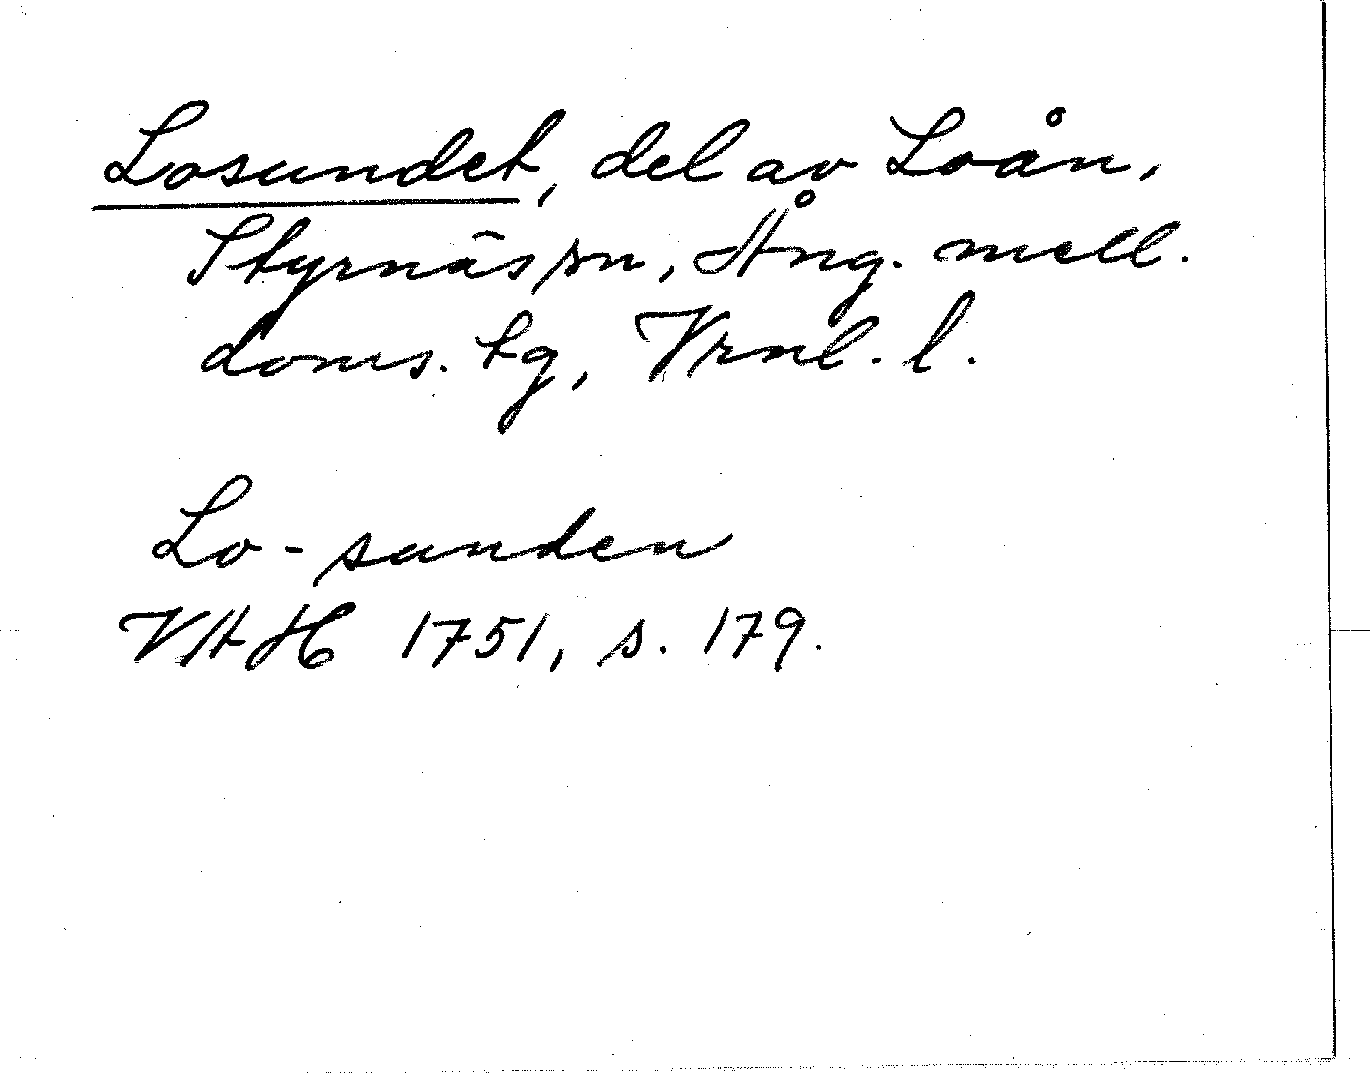 Losundet, del av Loån,
Styrnäs sn, Ång. mell.
doms. tg, Vrnl. l.
Lo-sunden
VHH 1751, s. 179.